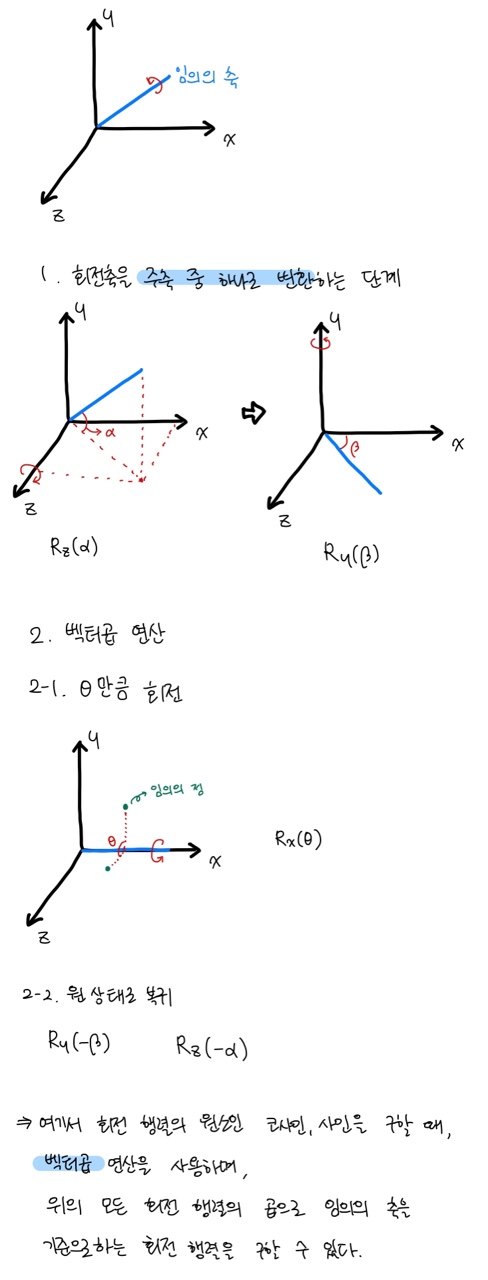 y
임의의 축
x
z
1. 회전축을 주축 중 하나로 변환하는 단계
y
α
x
z
Rz(α)
y
β
x
z
Ry(β)
2. 벡터곱 연산
2-1. θ만큼 회전
y
임의의 점
θ
x
z
Rx(θ)
2-2. 원 상태로 복귀
Ry(-β) Rz(-α)
⇒ 여기서 회전 행렬의 원소인 코사인, 사인을 구할 때,
벡터곱 연산을 사용하며,
위의 모든 회전 행렬의 곱으로 임의의 축을
기준으로하는 회전 행렬을 구할 수 있다.